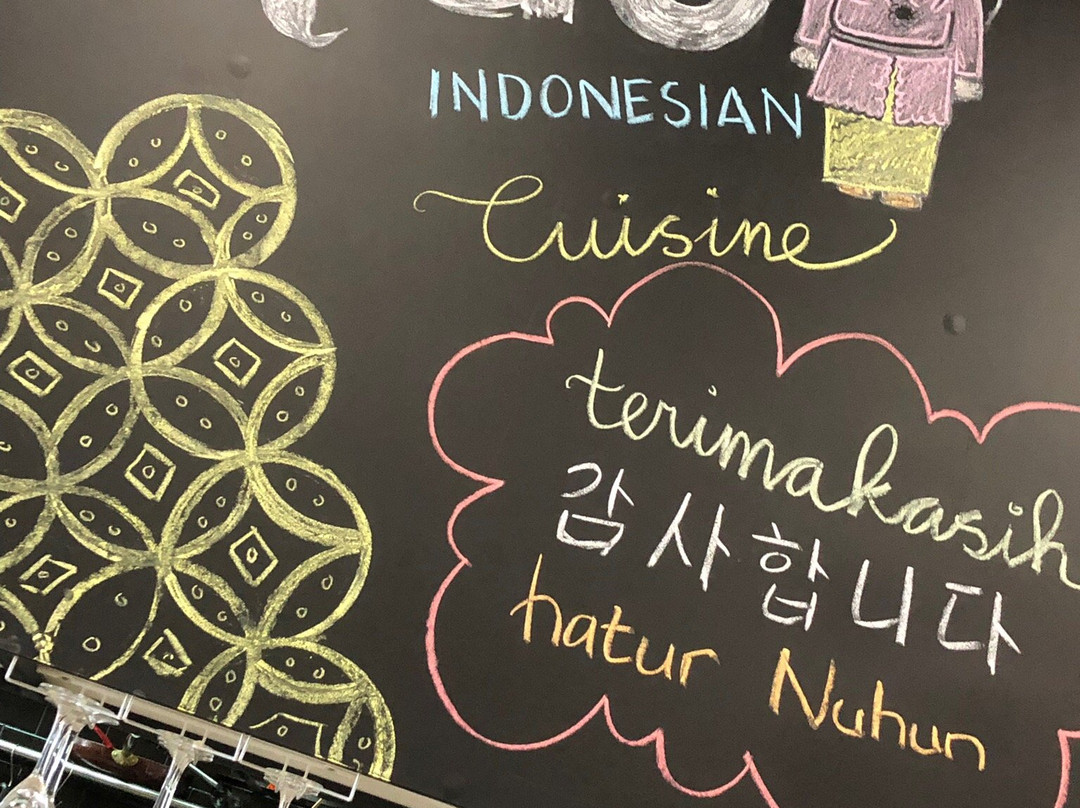 INDONESIAN
Cuisine
terimakasih
감사합니다
hatur Nuhun